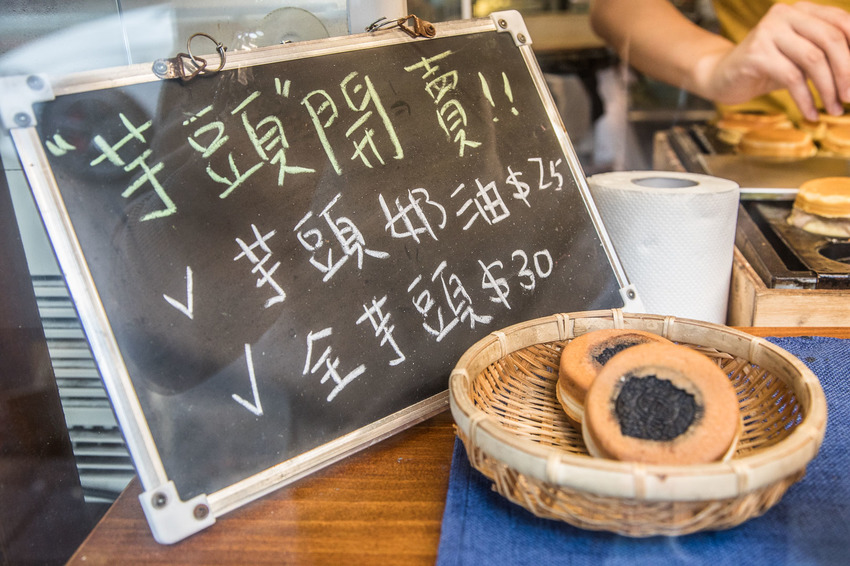 "芋頭"開賣!!
✓ 芋頭奶油$25
✓ 全芋頭$30